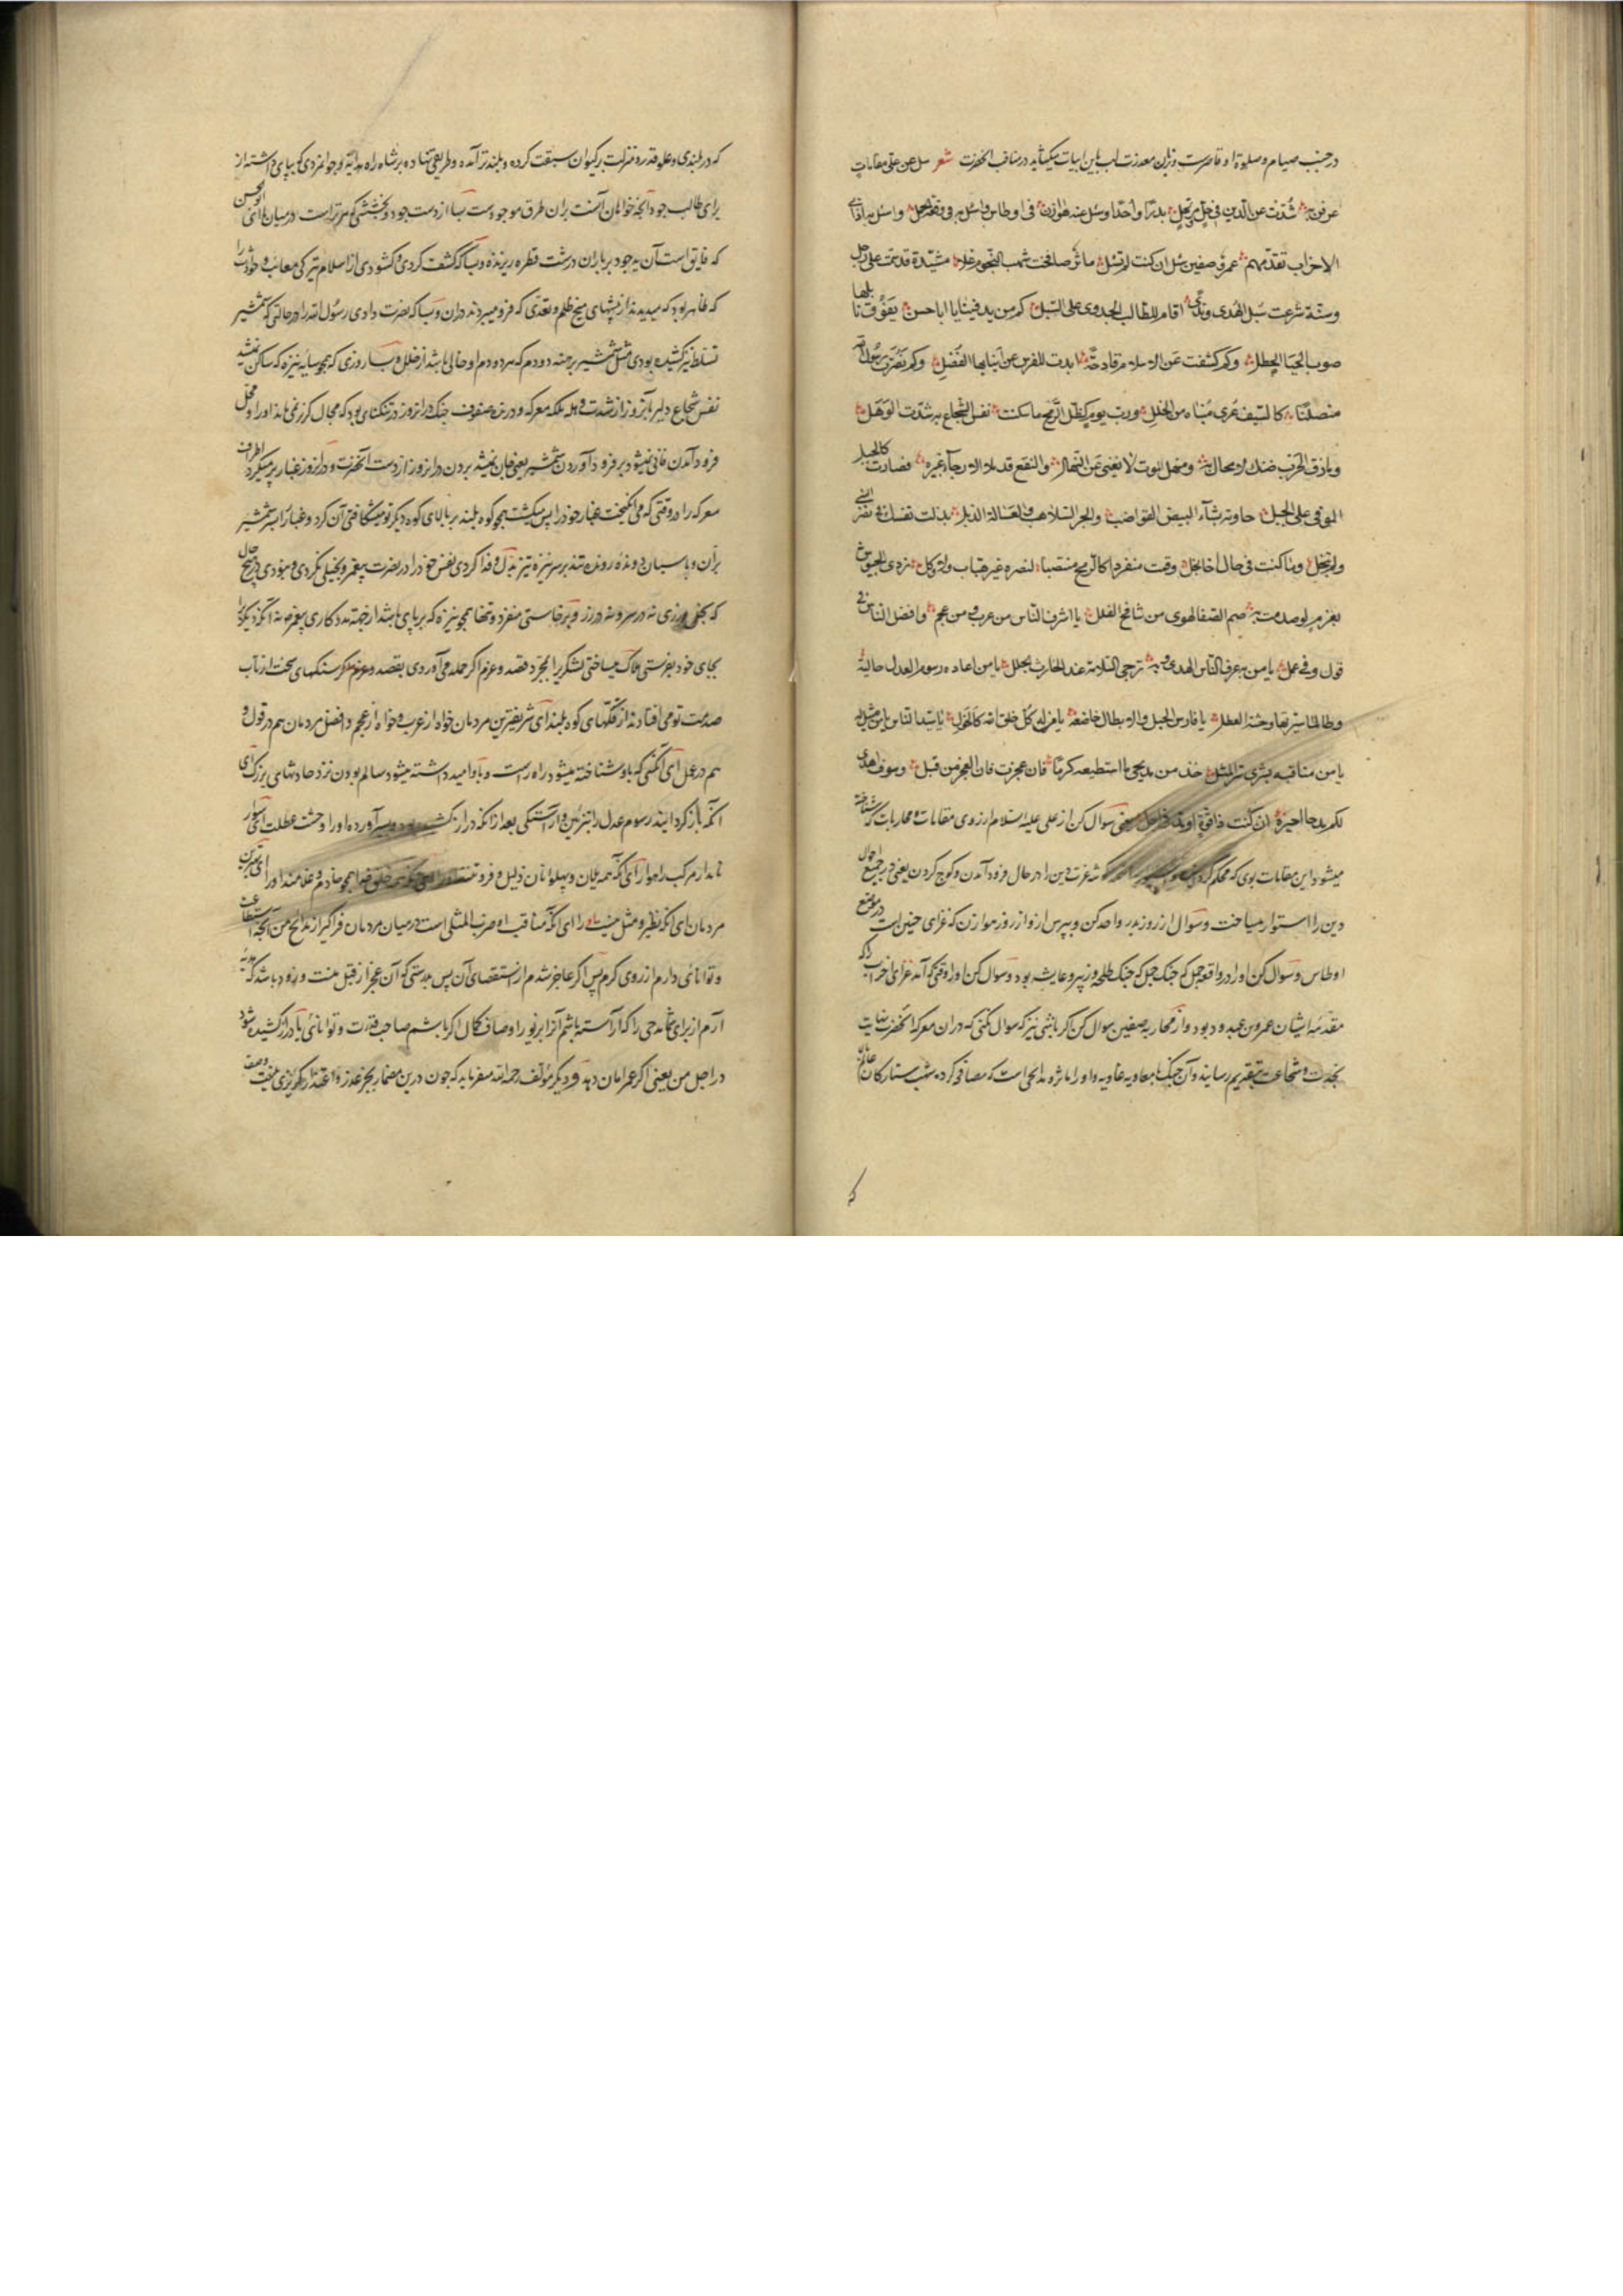 در جنب صیام و صلوة او قاصرست و زبان معذرت لب باین ابیات میگشاید در مناقب آنحضرت شعر سل عن علی مقامات
عرفن به شدت عن الدین فی حل و مرتحل بدرا و أحدا وسل عنه هوازن فی اوطاس واسئل به فی وقعة الجمل واسئل به اذ اتی
الاحزاب تقدمهم عمرو و صفین سل ان کنت لم تسل مآثر صافحت شهب النجوم علا مشیدة قد سمت علی زحل
وسنة شرعت سبل الهدی وندی اقام للطالب الجدوی علی السبل کم من ید فینا یا ابا حسن یفوق نائلها
صوب الحیا الهطل وکم کشفت عن الاسلام قادحة ابدت لتفرس عن انیابها العضل وکم نصرت رسول الله
منصلتا کالسیف عری متناه من الخلل ورب یوم کظل الریح ما سکنت نفس الشجاع به من شدت الوهل
ومازق الحرب ضنک لا مجال به ومنهل الموت لا یغنی عن النهل والنقع قد ملا الارجاء عثیره فصارت کالجبل
الموفی علی الجبل جلوته بشبا البیض القواضب والجرد السلاهب والعسالة الذبل بذلت نفسک فی نصر النبی
ولم تبخل وما کنت فی حال اخا بخل وقمت منفردا کالرمح منتصبا لنصره غیر هیاب ولا وکل تردی الجیوش
بعزم لو صدمت به صم الصفا لهوی من شامخ القلل یا اشرف الناس من عرب ومن عجم وافضل الناس فی
قول وفی عمل یا من به عرف الناس الهدی وبه ترجی السلامة عند الحادث الجلل یا من اعاد رسوم العدل حالیة
وطالما سترتها وحشة العطل یا فارس الخیل والابطال خاضعة یا من له کل خلق الله کالخول یا سید الناس یا من لا مثیل له
یا من مناقبه تسری سری المثل خذ من مدیحی ما استطیعه کرما فان عجزت فان العجز من قبلی وسوف اهدی
لکم مدحا احبره ان کنت ذا قدرة او مد فی اجلی یعنی سوال کن از علی علیه السلام از روی مقامات و محاربات که شناخته
میشود این مقامات بوی که محکم دین را در حال فرود آمدن و کوچ کردن یعنی در جمیع احوال
دین را استوار میساخت و سوال از روز بدر و احد کن و بپرس ازو از روز هوازن که غزای حنین است در موضع
اوطاس و سوال کن او را در واقعه جمل که جنک جمل که جنک طلحه و زبیر و عایشه بود و سوال کن او را وقتی که آمد غزای احزاب که
مقدمه ایشان عمرو بن عبد ود بود و از محاربه صفین سوال کن کر باشی نیز که سوال نکنی که دران معرکه آنحضرت بنهایت
نجدت و شجاعت بتقدیم رسانید و آن جنگ با معاویه غاویه و او را ماثر و مدایحی است که مصافحه کرده شهب ستارکان عالم را
که
که در بلندی و علو قدر و منزلت بر کیوان سبقت کرده و بلندتر آمده و طریقی نهاده بر شاه راه هدایة و جوانمردی که بپای داشته از
برای طالب جود آنچه خواهان آنست بران طرق موجودست بسا از دست جود و بخششی که مر تراست در میان ما ای ابو الحسن
که فایق است آن ید جود بر باران درشت قطره ریزنده و بسا که کشف کردی و کشودی از اسلام تیرکی مصایب و حوادث را
که ظاهر بود که میدیدند از نیشهای کج ظلم و تعدی که فرو میبردند دران و بسا که نصرت دادی رسول الله را در حالتی که شمشیر
تسلط نیز کشیده بودی مثل شمشیر برهنه دو دم که هر دو دم او خالی باشد از خلل و بسا روزی که همچو سایه نیزه که ساکن نمیشد
نفس شجاع دلیر بآن روز از شدت و هلهله معرکه و در نزد صفوف جنک دران روز در تنکنای بود که مجال کریز نمی‌ماند او را و محل
فرود آمدن فانی نمیشود بر فرود آوردن شمشیر یعنی جان نمیشد بردن دران روز از دست آنحضرت و دران روز غبار پر میکرد اطراف
معرکه را در وقتی که می انکیخت غبار خود را پس میکشت همچو کوه بلند بر بالای کوه دیکر تو میشکافتی آن کرد و غبار را بشمشیر
بران و باسبان دونده رونده تند بر سر نیزه تیز بذل و فدا کردی نفس خود را در نصرت پیغمبر و بخیلی نکردی و نبودی در هیچ حال
که بخل ورزی نه در سر و نه در زر و برخاستی منفرد و تنها همچو نیزه که بر پای باشد از جهت مددکاری پیغمبر نه آنکه دیکری را
بجای خود بفرستی هلاک میساختی لشکر را بمجرد قصد و عزم اکر حمله می آوردی بقصد و عزم مکر سنکهای سخت از تاب
صدمت تو می افتادند از قلّتهای کوه بلند ای شریفترین مردمان خواه از عرب و خواه از عجم و افضل مردمان هم در قول و
هم در عمل ای آنکسی که باو شناخته میشود راه راست و باو امید داشته میشود سالم بودن نزد حادثهای بزرک ای
آنکه باز کردانیند رسوم عدل را بتزیین و آراستکی بعد از آنکه دراز کشیده بود و سر آورده او را وحشت عطلت ای سوار
نامدار مرکب راهوار ای آنکه همه یلان و پهلوانان ذلیل و فروتنند ای آنکه مر خلق خدا همچو خادم و غلامند او را ای بهترین
مردمان ای آنکه نظیر و مثل نیست او را ای آنکه مناقب او ضرب المثلی است در میان مردمان فرا کیر از مدایح من آنچه استطاعت
و توانائی دارم از روی کرم پس اکر عاجز شدم از استقصای آن پس بدرستی که آن عجز از قبل منست و زود باشد که هدیه
آرم از برای شما مدحی را که آراسته باشم آنرا بزیور اوصاف کمال اکر باشم صاحب قدرت و توانائی یا دراز کشیده شود
در اجل من یعنی اکر عمر امان دهد و دیکر مولف رحمه الله میفرماید که چون درین مضمار بجز عذر و اعتذار کریزی نیست وصف